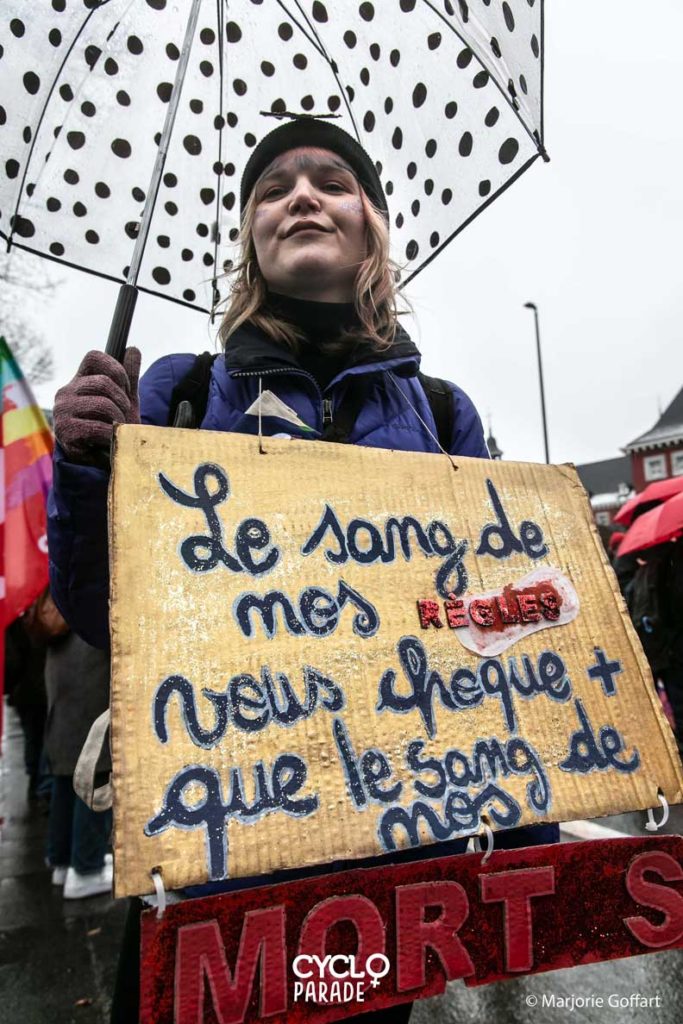 Le sang de
nos RÈGLES
vous choque +
que le sang de
nos
MORTS
CYCLO
PARADE
© Marjorie Goffart